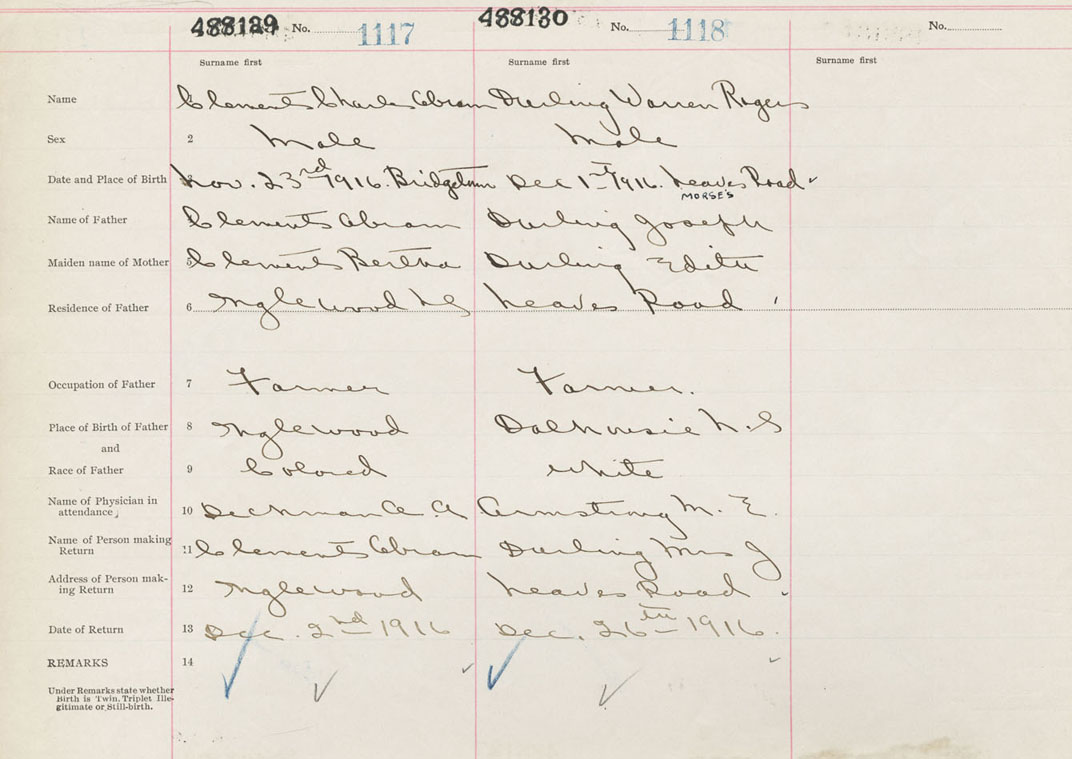 488129 No. 1117 488130 No. 1118 No.
Surname first Surname first Surname first
Name Clements Charles Abram Durling Warren Rogers
Sex 2 Male Male
Date and Place of Birth Nov. 23rd 1916. Bridgetown Dec 1st 1916. Leaves Road
MORSE'S
Name of Father Clements Abram Durling Joseph
Maiden name of Mother 5 Clements Bertha Durling Edith
Residence of Father 6 Inglewood NS Leaves Road
Occupation of Father 7 Farmer Farmer.
Place of Birth of Father 8 Inglewood Dalhousie N.S
and
Race of Father 9 Colored White
Name of Physician in
attendance 10 Deckman A. A Armstrong M. E.
Name of Person making
Return 11 Clements Abram Durling Mrs J
Address of Person mak-
ing Return 12 Inglewood Leaves Road
Date of Return 13 Dec. 2nd 1916 Dec. 26th 1916.
REMARKS 14
Under Remarks state whether
Birth is Twin, Triplet Ille-
gitimate or Still-birth.